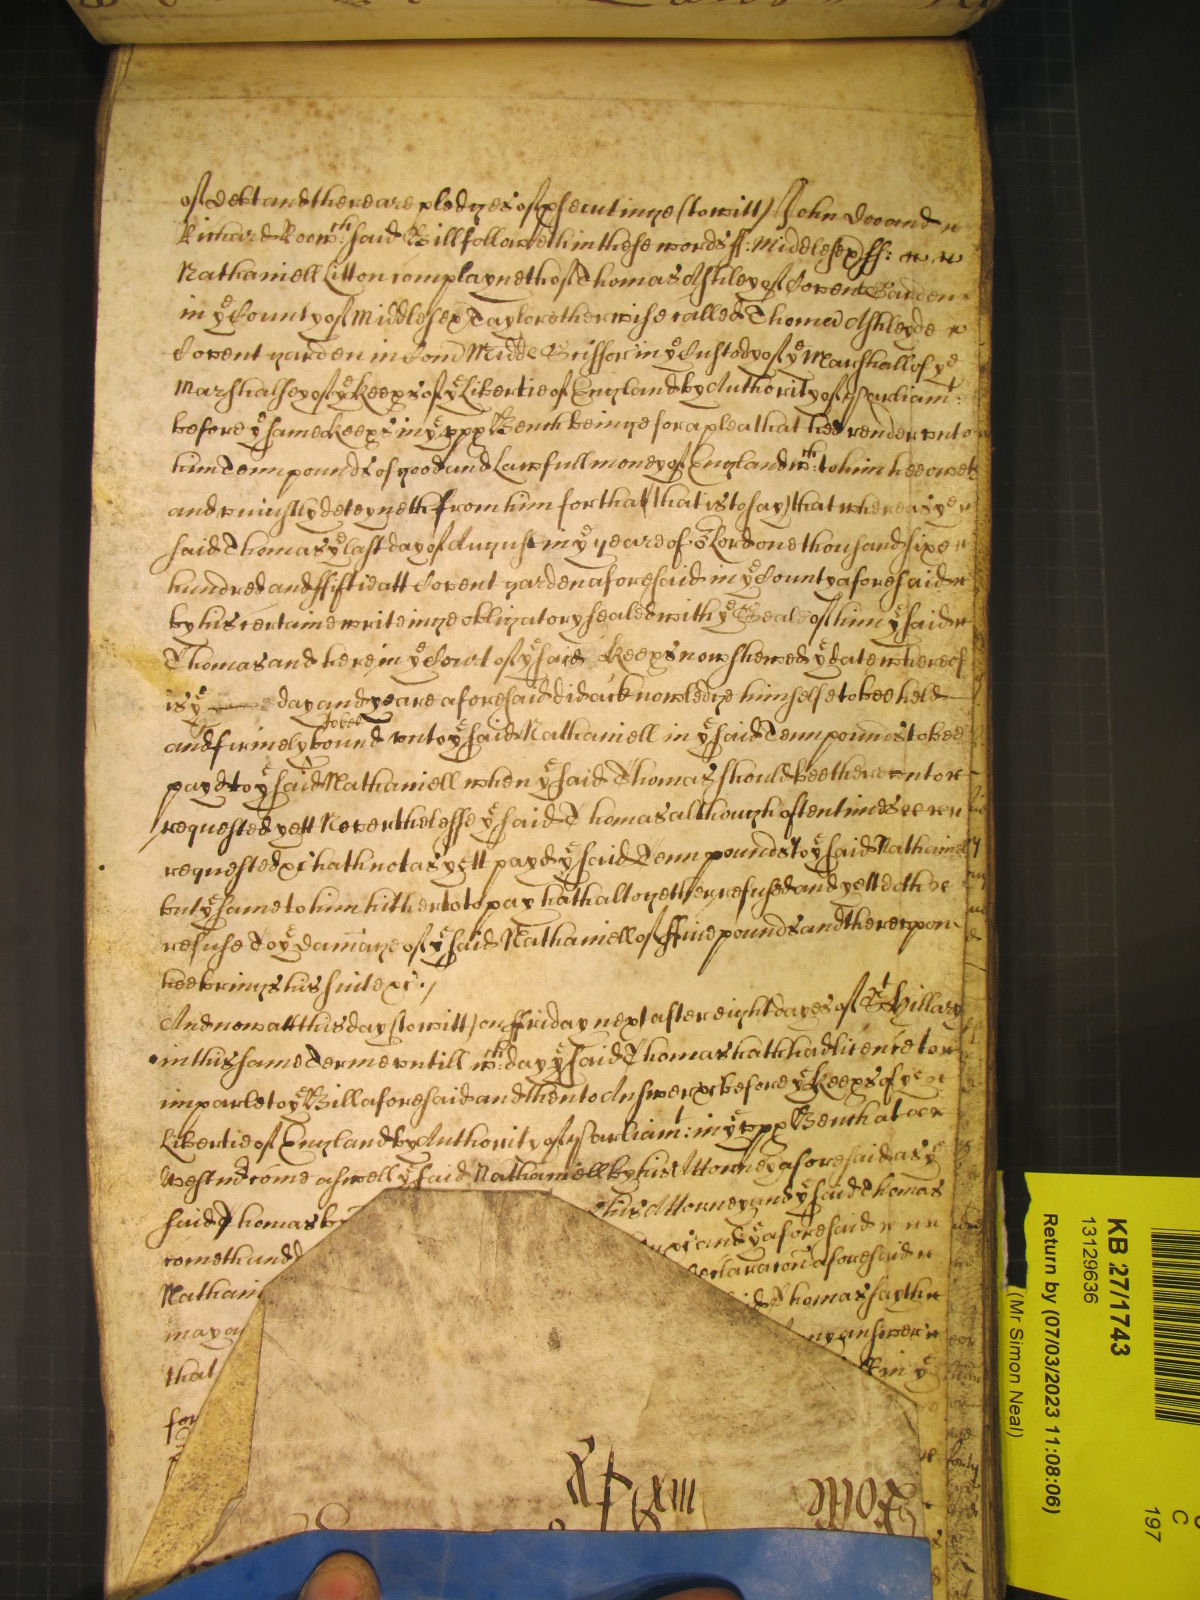 of debt and there are pledges of psecutinge (to witt) John Doo and
Richard Roo wch: said Bill followeth in these words ss: Middlesex ss:
Nathaniell Litton complayneth of Thomas Ashley of Covent Garden
in ye County of Middlesex Taylor otherwise called Thomas Ashley de
Covent garden in Com Midd in ye Custody of ye Marshall of ye
Marshalsey of ye Keeps of ye Libertie of England by Authority of Parliamt:
before ye same Keeps in ye upp Bench beinge for a plea that hee render unto
him Tenn pounds of good and Lawfull money of England wch: to him hee oweth
and uniustly deteyneth from him for that (that is to say) that whereas ye
said Thomas ye last day of August in ye yeare of or Lord one thousand sixe
hundred and ffiftie att Covent garden aforesaid in ye County aforesaid
by his certaine writeinge obligatory sealed with ye Seale of him ye said
Thomas and here in ye Court of ye said Keeps now shewed ye date whereof
is ye day and yeare aforesaid did acknowledge himselfe to bee held
and firmely to bee bound unto ye said Nathaniell in ye said Tenn pounds to bee
payd to ye said Nathaniell when ye said Thomas should bee thereunto
requested yett Neverthelesse ye said Thomas although oftentimes
requested &c hath not as yett payd ye said Tenn pounds to ye said Nathaniell
but ye same to him hitherto to pay hath altogether refused and yett doth
refuse To ye damage of ye said Nathaniell of ffive pounds and thereupon
hee brings his suite &c:
And now att this day (to witt) on ffriday next after eight dayes of St Hillary
in this same Terme untill wch: day ye said Thomas hath had licence to
imparle to ye Bill aforesaid and then to Answer &c before ye Keeps of ye
Libertie of England by Authority of Parliamt: in ye upp Bench att
Westm come aswell ye said Nathaniell by his Attorney aforesaid as ye
said Thomas by his Attorney and ye said Thomas
cometh and &c and ye aforesaid
Nathani declaracon aforesaid
may Thomas sayth
that any answer
for in ye
KB 27/1743
13129636
Return by (07/03/2023 11:08:06)
(Mr Simon Neal)
C
197